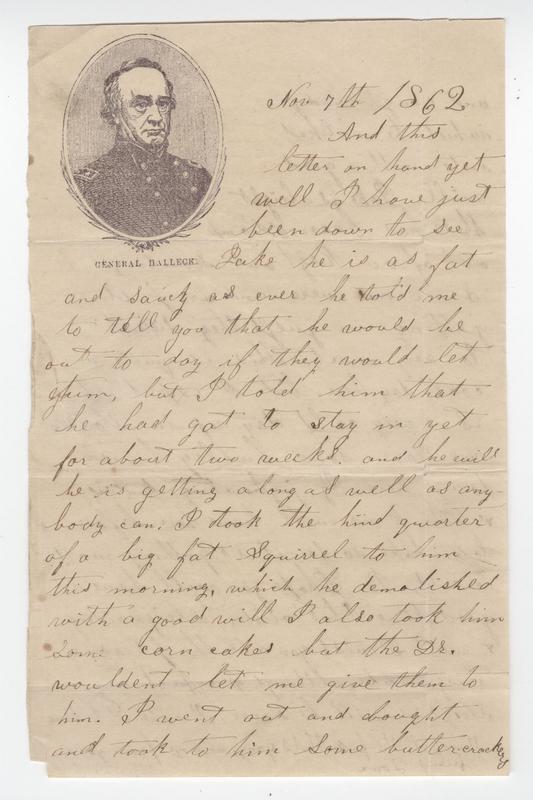 Nov 7th 1862
And this
letter on hand yet
well I have just
been down to see
GENERAL HALLECK.
Jake he is as fat
and saucy as ever he told me
to tell you that he would be
out to day if they would let
him, but I told him that
he had got to stay in yet
for about two weeks. and he will
he is getting along as well as any-
body can. I took the hind quarter
of a big fat Squirrel to him
this morning, which he demolished
with a good will I also took him
Some corn cakes but the Dr.
wouldent let me give them to
him. I went out and bought
and took to him Some butter-crackers